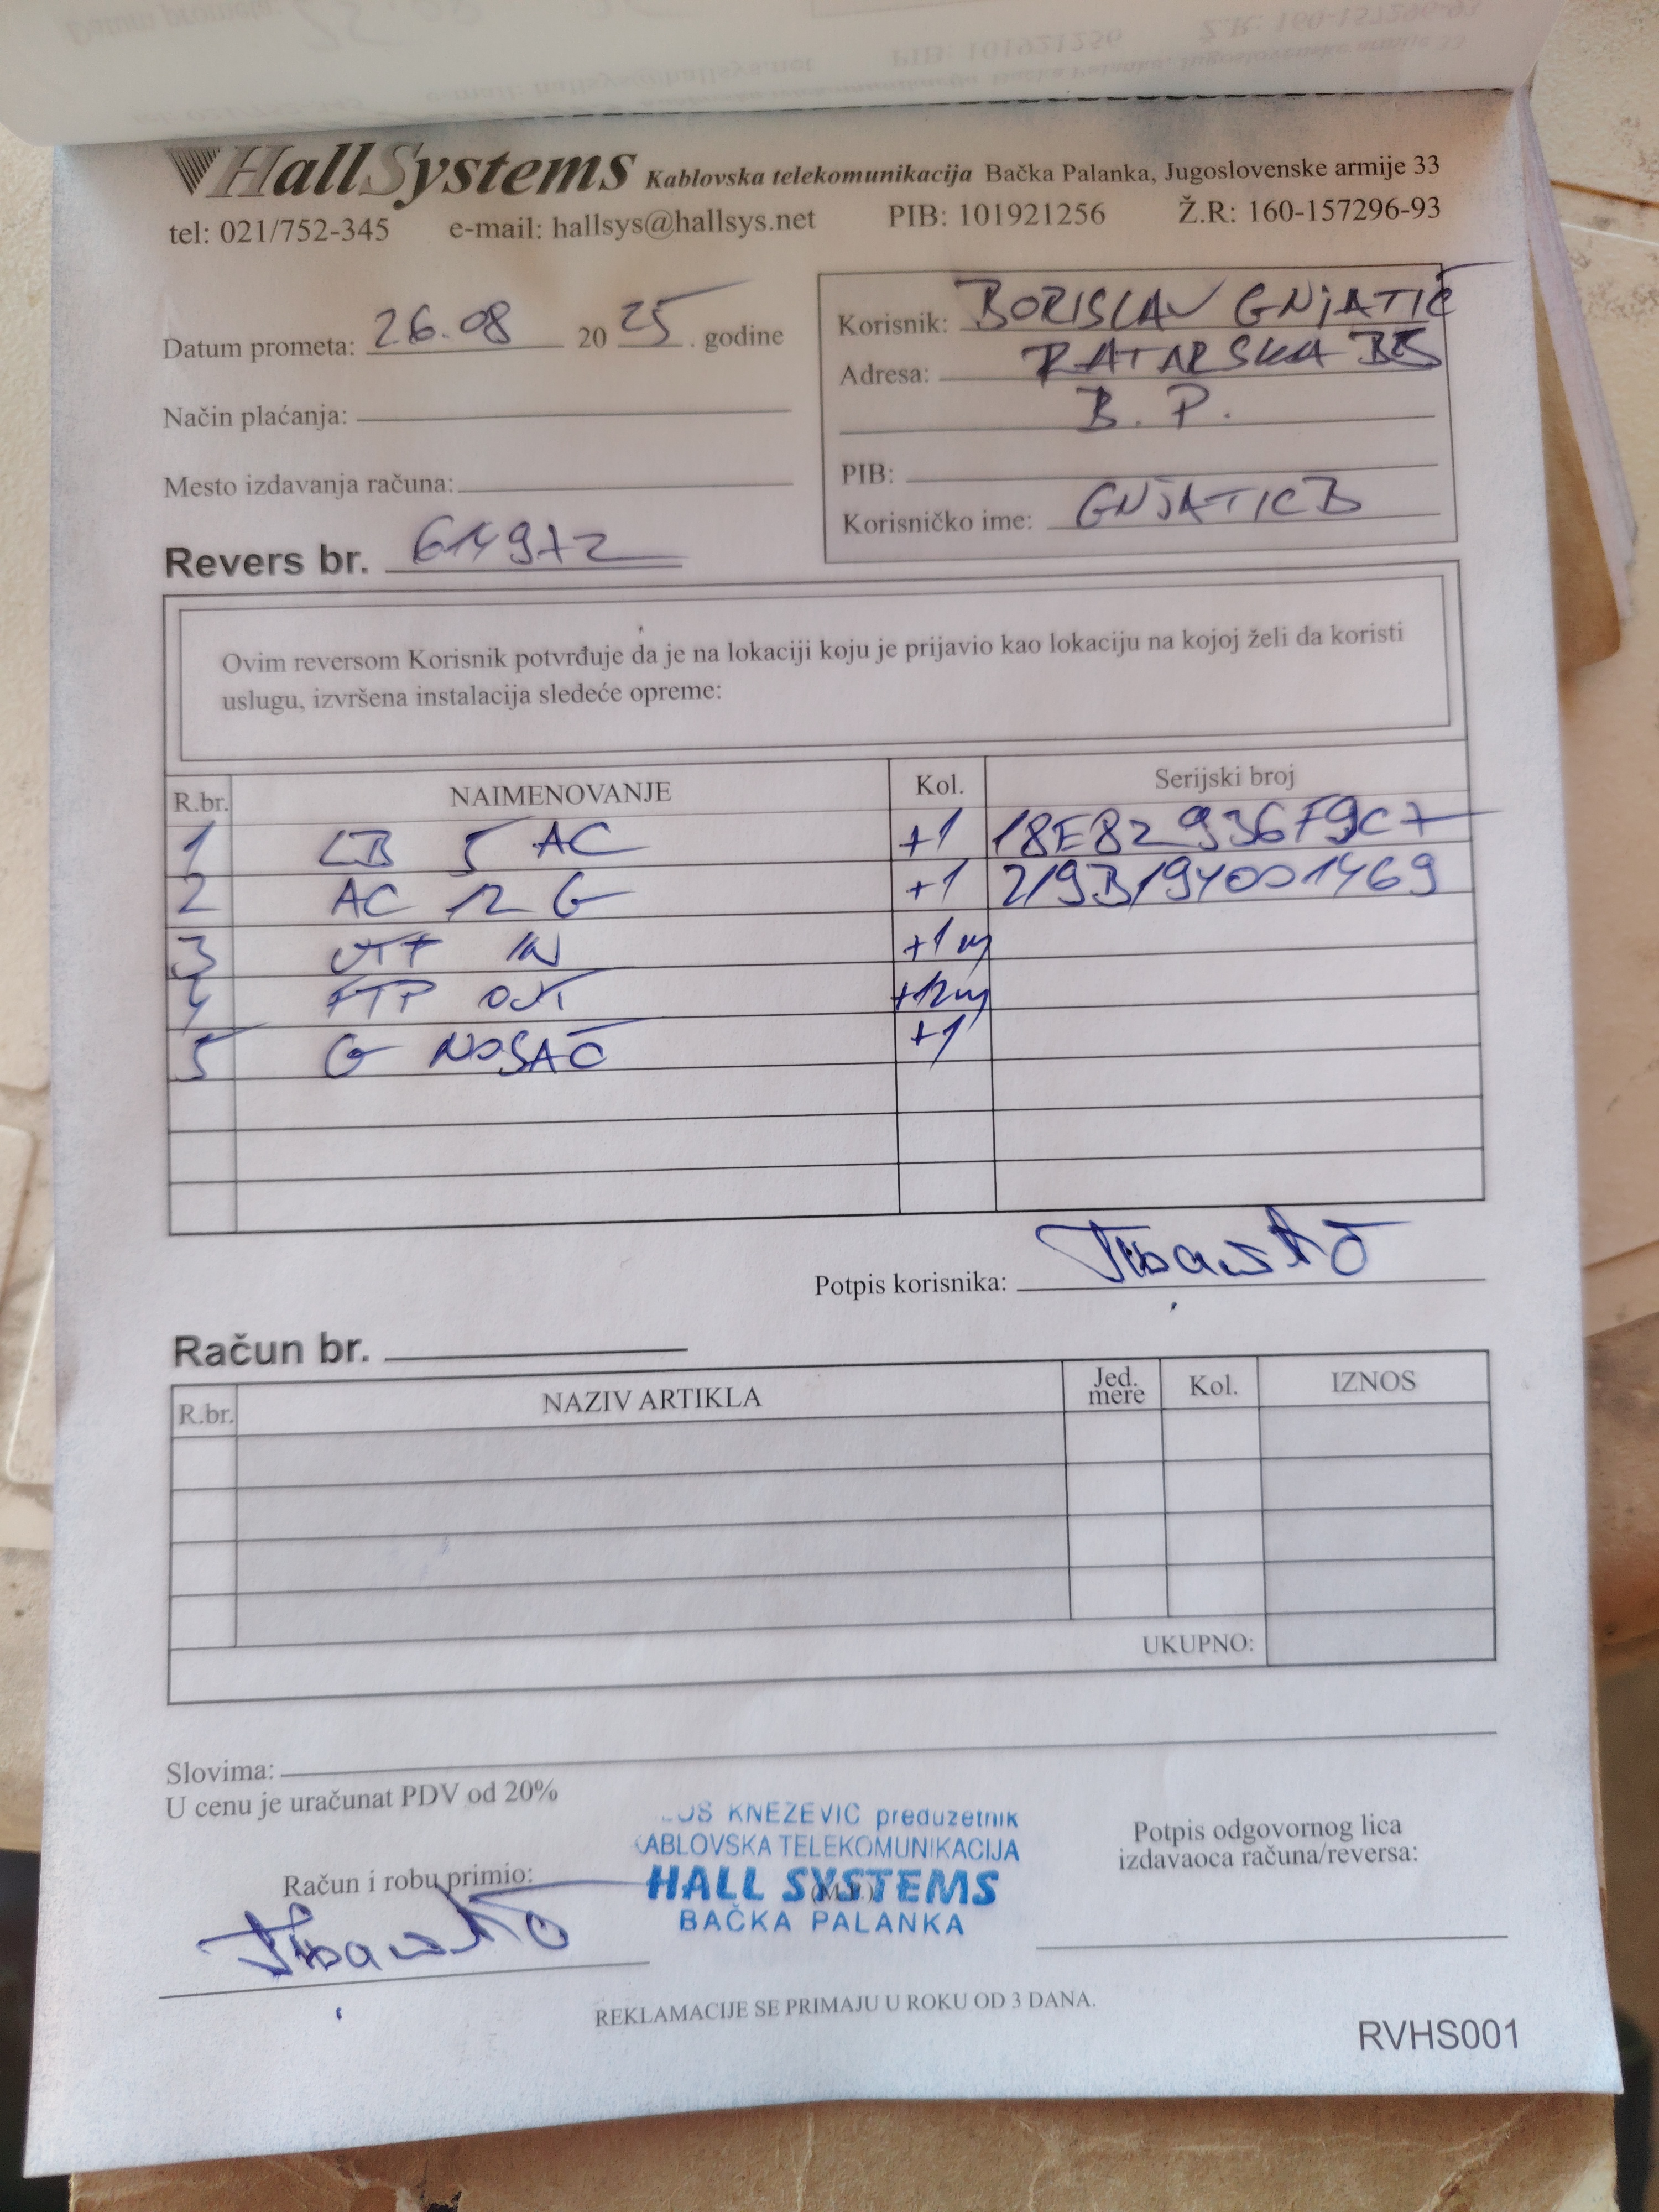 HallSystems Kablovska telekomunikacija Bačka Palanka, Jugoslovenske armije 33
tel: 021/752-345 e-mail: hallsys@hallsys.net PIB: 101921256 Ž.R: 160-157296-93
Datum prometa: 26.08 2025. godine
Način plaćanja:
Mesto izdavanja računa:
Korisnik: BORISLAV GNJATIĆ
Adresa: RATARSKA
B. P.
PIB:
Korisničko ime: GNJATICB
Revers br. 614972
Ovim reversom Korisnik potvrđuje da je na lokaciji koju je prijavio kao lokaciju na kojoj želi da koristi
uslugu, izvršena instalacija sledeće opreme:
R.br. NAIMENOVANJE Kol. Serijski broj
1 LB 5 AC +1 18E82936F9C7
2 AC 12 G +1 219B194001469
3 UTP IN +1m
4 FTP OUT +12m
5 G NOSAČ +1
Potpis korisnika:
Račun br.
R.br. NAZIV ARTIKLA Jed. mere Kol. IZNOS
UKUPNO:
Slovima:
U cenu je uračunat PDV od 20%
KNEZEVIC preduzetnik
KABLOVSKA TELEKOMUNIKACIJA
HALL SYSTEMS
BAČKA PALANKA
Račun i robu primio:
Potpis odgovornog lica
izdavaoca računa/reversa:
REKLAMACIJE SE PRIMAJU U ROKU OD 3 DANA.
RVHS001